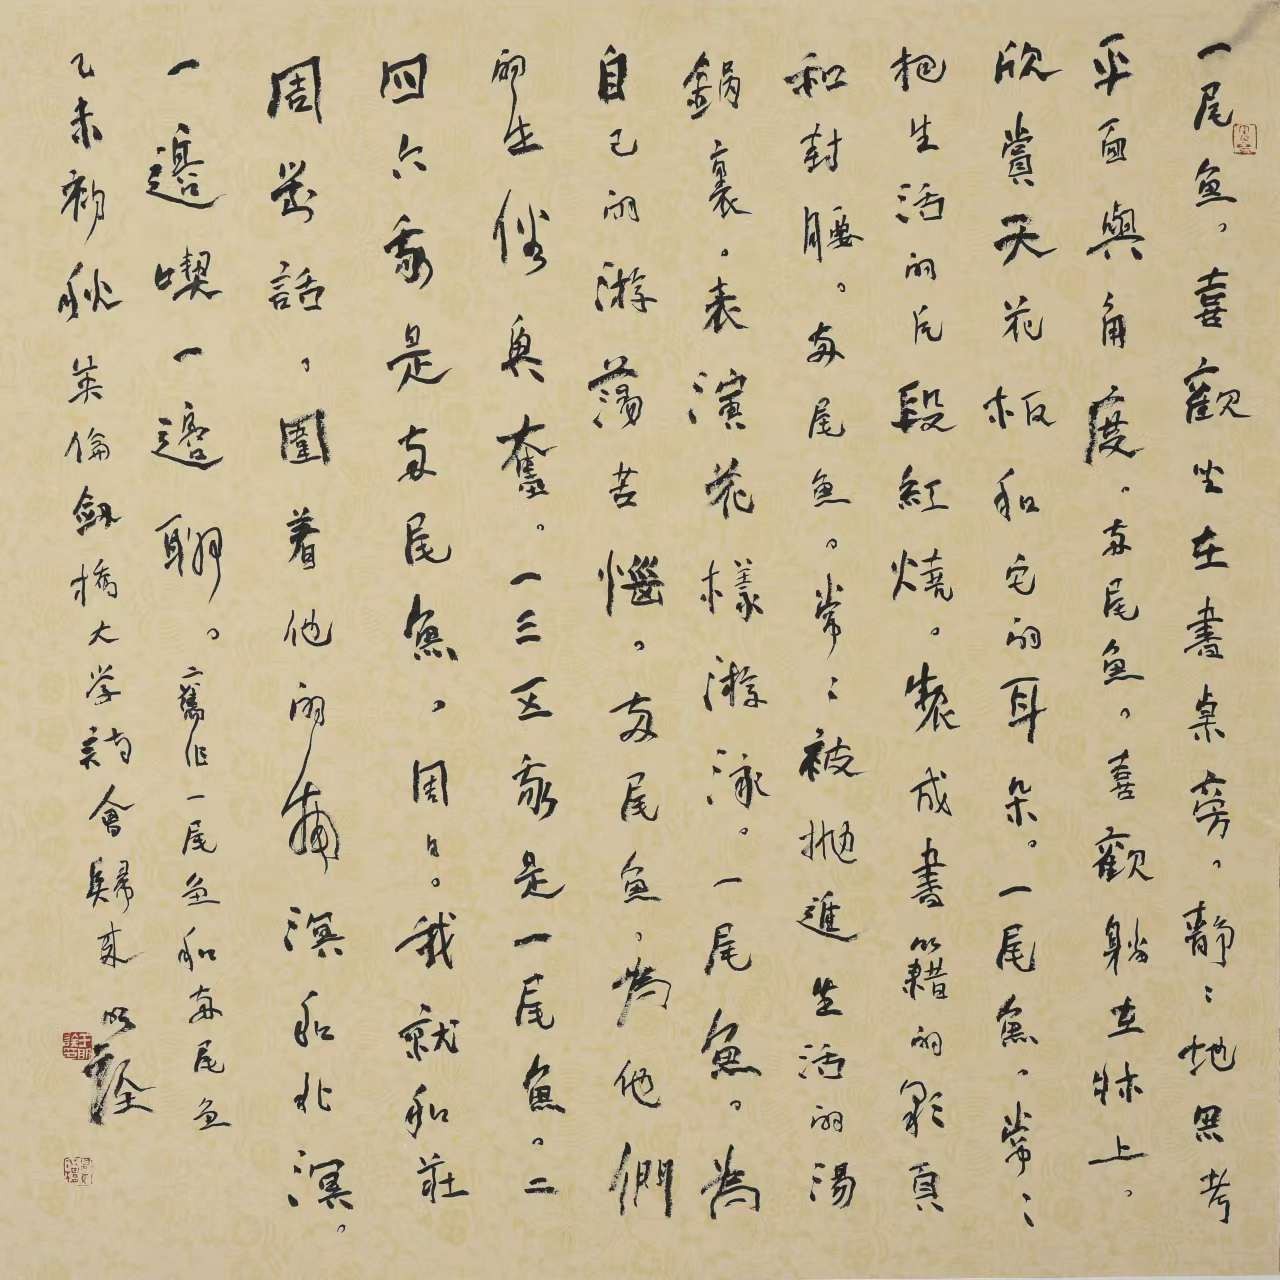 一尾魚。喜觀坐在書桌旁。靜〻地思考
平面與角度。兩尾魚。喜觀躺在牀上。
欣賞天花板和它的耳朵。一尾魚。常〻
把生活的片段紅燒。製成書籍的彩頁
和封腰。兩尾魚。常〻被拋進生活的湯
鍋裏。表演花樣游泳。一尾魚。為
自己的游蕩苦惱。兩尾魚。為他們
的生俗興奮。一三五我是一尾魚。二
四六我是兩尾魚。周日。我就和莊
周對話。圍着他的南溟和北溟。
一邊喫一邊聊。舊作一尾魚和兩尾魚
乙未初秋英倫劍橋大学詩會歸來